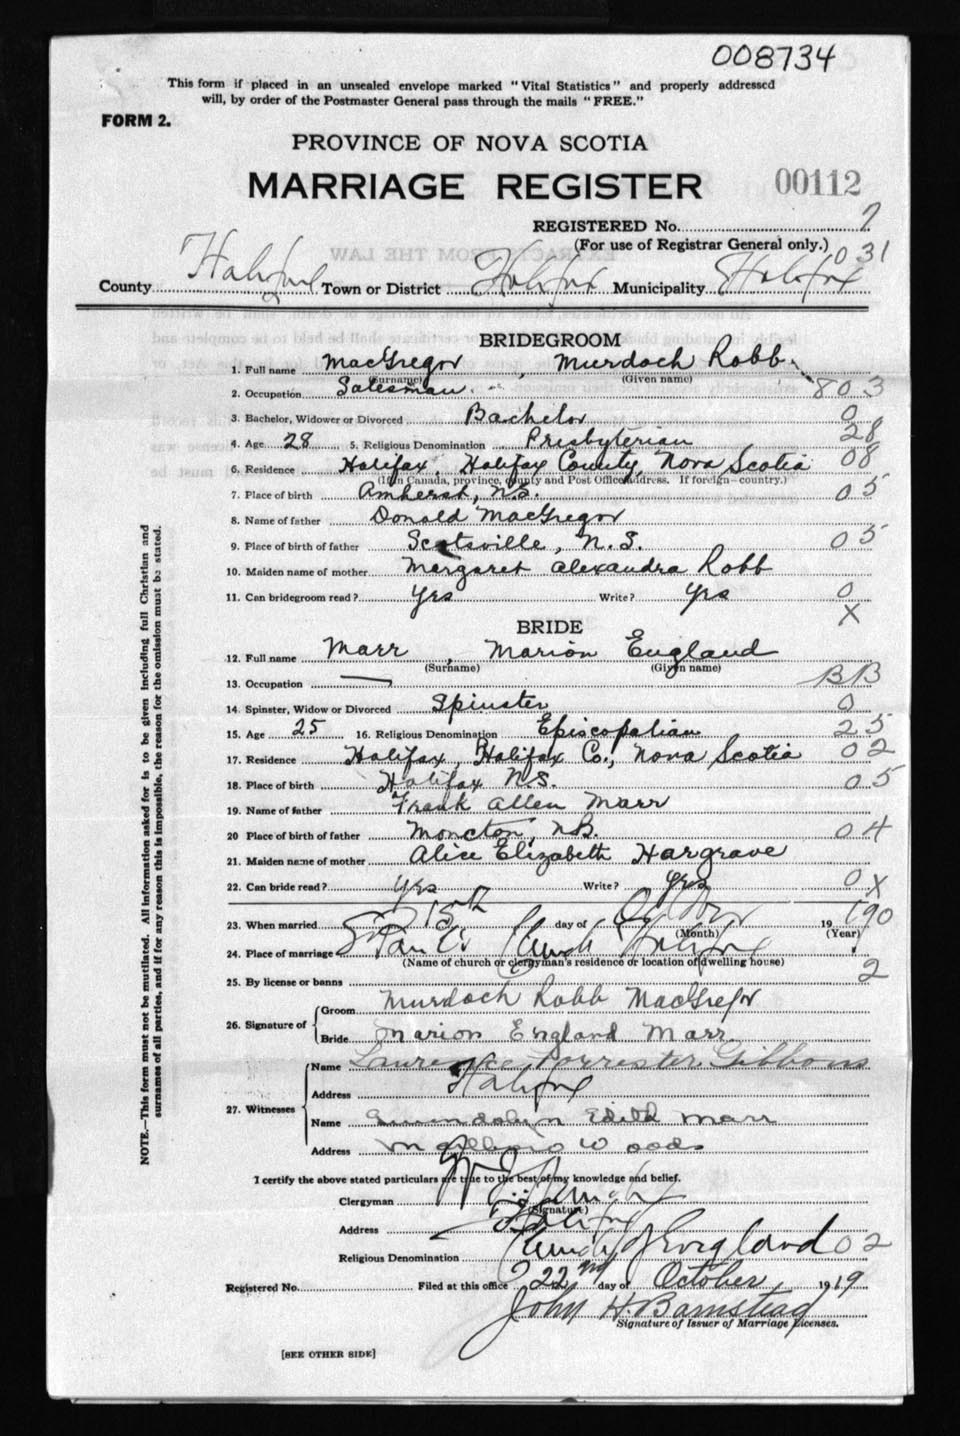 008734
This form if placed in an unsealed envelope marked "Vital Statistics" and properly addressed
will, by order of the Postmaster General pass through the mails "FREE."
FORM 2.
PROVINCE OF NOVA SCOTIA
MARRIAGE REGISTER 00112
REGISTERED No. 7
(For use of Registrar General only.) 031
County Halifax Town or District Halifax Municipality Halifax
BRIDEGROOM
1. Full name MacGregor, Murdoch Robb
(Surname) (Given name)
2. Occupation Salesman 803
3. Bachelor, Widower or Divorced Bachelor 0
4. Age 28 5. Religious Denomination Presbyterian 28
6. Residence Halifax, Halifax County, Nova Scotia 08
(If in Canada, province, county and Post Office address. If foreign—country.)
7. Place of birth Amherst, N.S. 05
8. Name of father Donald MacGregor
9. Place of birth of father Scotsville, N.S. 05
10. Maiden name of mother Margaret Alexandra Robb
11. Can bridegroom read? Yes Write? Yes 0
X
BRIDE
12. Full name Marr, Marion England
(Surname) (Given name)
13. Occupation — BB
14. Spinster, Widow or Divorced Spinster 0
15. Age 25 16. Religious Denomination Episcopalian 25
17. Residence Halifax, Halifax Co., Nova Scotia 02
18. Place of birth Halifax N.S. 05
19. Name of father Frank Allen Marr
20 Place of birth of father Moncton, N.B. 04
21. Maiden name of mother Alice Elizabeth Hargrave
22. Can bride read? Yes Write? Yes 0 X
23. When married 15th day of October 19 190
(Month) (Year)
24. Place of marriage St Paul's Church Halifax
(Name of church or clergyman's residence or location of dwelling house)
25. By license or banns 2
26. Signature of Groom Murdoch Robb MacGregor
Bride Marion England Marr
27. Witnesses Name Laurence Forrester Gibbons
Address Halifax
Name Gwendolyn Edith Marr
Address Woods
I certify the above stated particulars are true to the best of my knowledge and belief.
Clergyman
(Signature)
Address Halifax
Religious Denomination Church of England 02
Registered No. Filed at this office 22nd day of October, 1919
John H. Barnstead
Signature of Issuer of Marriage Licenses.
[SEE OTHER SIDE]
NOTE.—This form must not be mutilated. All information asked for is to be given including full Christian and
surnames of all parties, and if for any reason this is impossible, the reason for the omission must be stated.